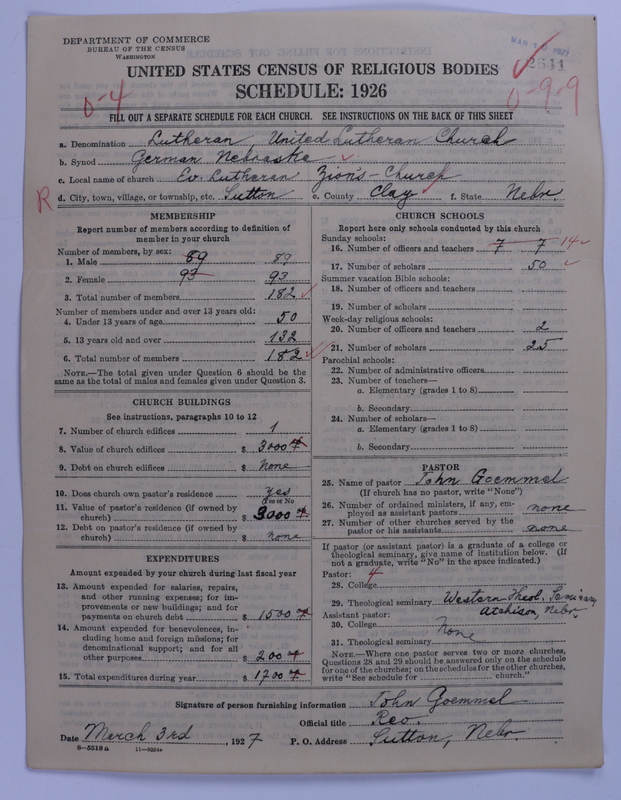 DEPARTMENT OF COMMERCE
BUREAU OF THE CENSUS
WASHINGTON
MAR 10 1927
2644
UNITED STATES CENSUS OF RELIGIOUS BODIES
SCHEDULE: 1926
0-4
0-9-9
FILL OUT A SEPARATE SCHEDULE FOR EACH CHURCH. SEE INSTRUCTIONS ON THE BACK OF THIS SHEET
a. Denomination Lutheran, United Lutheran Church
b. Synod German Nebraska
c. Local name of church Ev. Lutheran Zion's-Church
R
d. City, town, village, or township, etc. Sutton e. County Clay f. State Nebr.
MEMBERSHIP
Report number of members according to definition of
member in your church
Number of members, by sex:
1. Male 89 89
2. Female 93 93
3. Total number of members 182
Number of members under and over 13 years old:
4. Under 13 years of age 50
5. 13 years old and over 132
6. Total number of members 182
NOTE.—The total given under Question 6 should be
same as the total of males and females given under Question 3.
CHURCH BUILDINGS
See instructions, paragraphs 10 to 12
7. Number of church edifices 1
8. Value of church edifices $ 3000
9. Debt on church edifices $ None
10. Does church own pastor's residence Yes
Yes or No
11. Value of pastor's residence (if owned by
church) $ 3000
12. Debt on pastor's residence (if owned by
church) $ None
EXPENDITURES
Amount expended by your church during last fiscal year
13. Amount expended for salaries, repairs,
and other running expenses; for im-
provements or new buildings; and for
payments on church debt $ 1500
14. Amount expended for benevolences, in-
cluding home and foreign missions; for
denominational support; and for all
other purposes $ 200
15. Total expenditures during year $ 1700
CHURCH SCHOOLS
Report here only schools conducted by this church
Sunday schools:
16. Number of officers and teachers 7 7 14
17. Number of scholars 50
Summer vacation Bible schools:
18. Number of officers and teachers
19. Number of scholars
Week-day religious schools:
20. Number of officers and teachers 2
21. Number of scholars 25
Parochial schools:
22. Number of administrative officers
23. Number of teachers—
a. Elementary (grades 1 to 8)
b. Secondary
24. Number of scholars—
a. Elementary (grades 1 to 8)
b. Secondary
PASTOR
25. Name of pastor John Goemmel
(If church has no pastor, write "None")
26. Number of ordained ministers, if any, em-
ployed as assistant pastors none
27. Number of other churches served by the
pastor or his assistants none
If pastor (or assistant pastor) is a graduate of a college or
theological seminary, give name of institution below. (If
not a graduate, write "No" in the space indicated.)
Pastor: 4
28. College
29. Theological seminary Western Theol. Seminary,
Assistant pastor: Atchison, Nebr.
30. College None
31. Theological seminary
NOTE.—Where one pastor serves two or more churches,
Questions 28 and 29 should be answered only on the schedule
for one of the churches; on the schedules for the other churches,
write "See schedule for church."
Signature of person furnishing information John Goemmel
Official title Rev.
Date March 3rd, 1927 P. O. Address Sutton, Nebr.
8-5518a